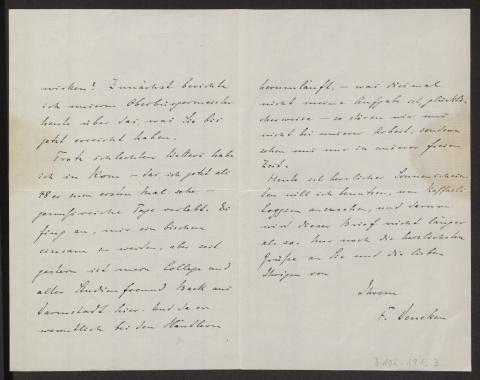 wirken! Zunächst berichte
ich unserem Oberbürgermeister
heute über das, was Sie bis
jetzt erreicht haben.
Trotz schlechten Wetters habe
ich in Rom – das ich jetzt als
48er zum ersten Mal sehe –
genussreiche Tage verlebt. Es
fing an, mir ein bischen
einsam zu werden, aber seit
gestern ist mein College und
alter Studienfreund Back aus
Darmstadt hier. Und da er
wesentlich bei den Händlern
herumläuft, – was diesmal
nicht meine Aufgabe ist, glückli-
cherweise – so stören wir uns
nicht bei unserer Arbeit, sondern
sehen uns nur in unserer freien
Zeit.
Heute ist herrlicher Sonnenschein
den will ich benutzen, um Raffaels
Loggien anzusehen, und darum
wird dieser Brief nicht länger
als so. Nur noch die herzlichsten
Grüße an Sie und die lieben
Ihrigen von
Ihrem
F.